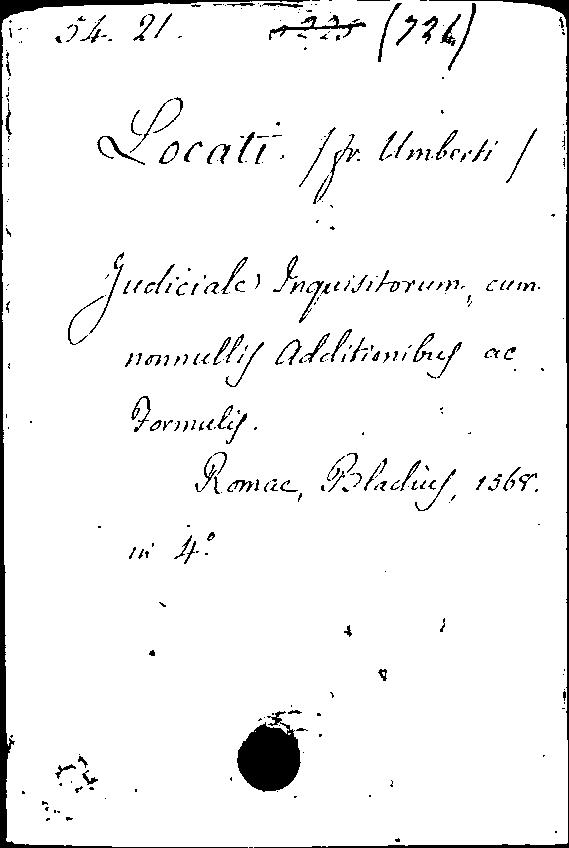 54. 21. (726)
Locati. / fr. Umberti /
Judiciale Inquisitorum, cum
nonnullis Additionibus ac
Formulis.
Romae, Bladius, 1568.
in 4º